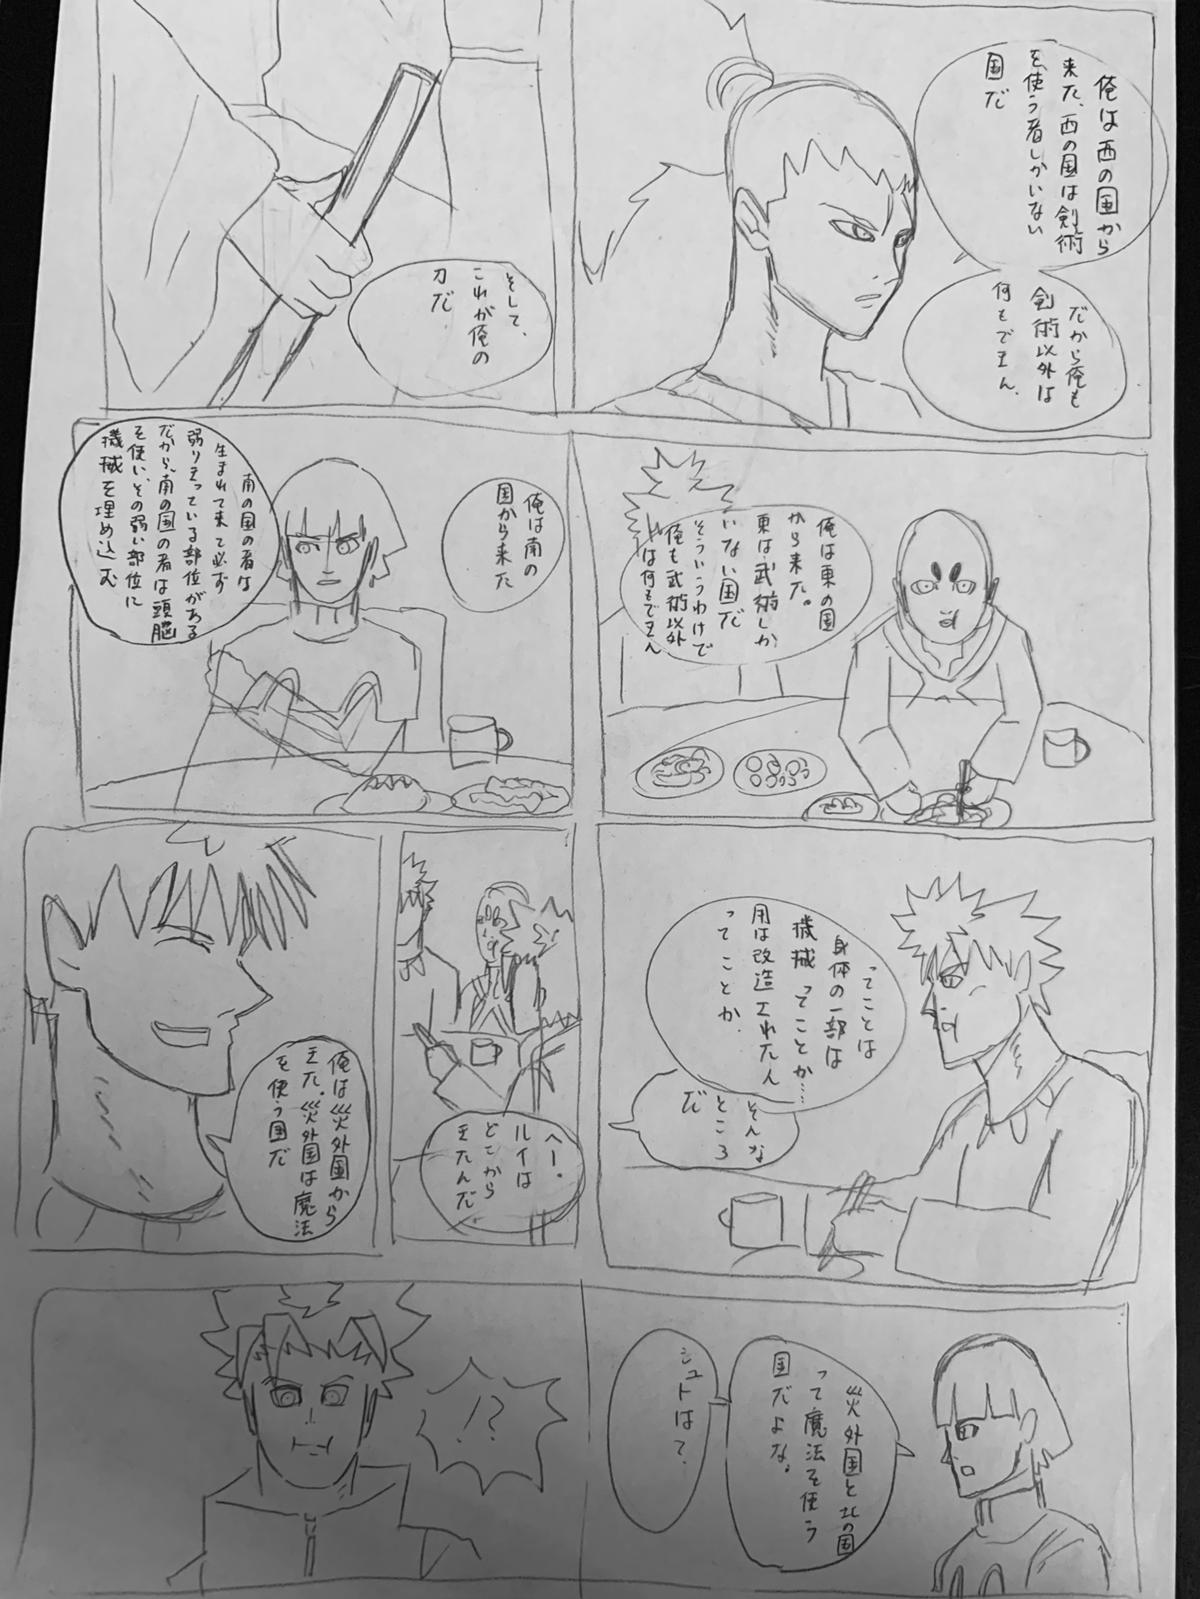 俺は西の国から
来た、西の国は剣術
を使う者しかいない
国だ
だから俺も
剣術以外は
何もできん、
そして、
これが俺の
刀だ
俺は東の国
から来た。
東は武術しか
いない国だ
そういうわけで
俺も武術以外
は何もできん
俺は南の
国から来た
南の国の者は
生まれて来て必ず
弱りきっている部位がある
だから、南の国の者は頭脳
を使い、その弱い部位に
機械を埋め込む
ってことは
身体の一部は
機械ってことか…
用は改造された人
ってことか、
そんな
ところ
だ
へー。
ルイは
どこから
きたんだ
俺は災外国から
きた。災外国は魔法
を使う国だ
災外国と北の国
って魔法を使う
国だよな。
シュトは?
!?